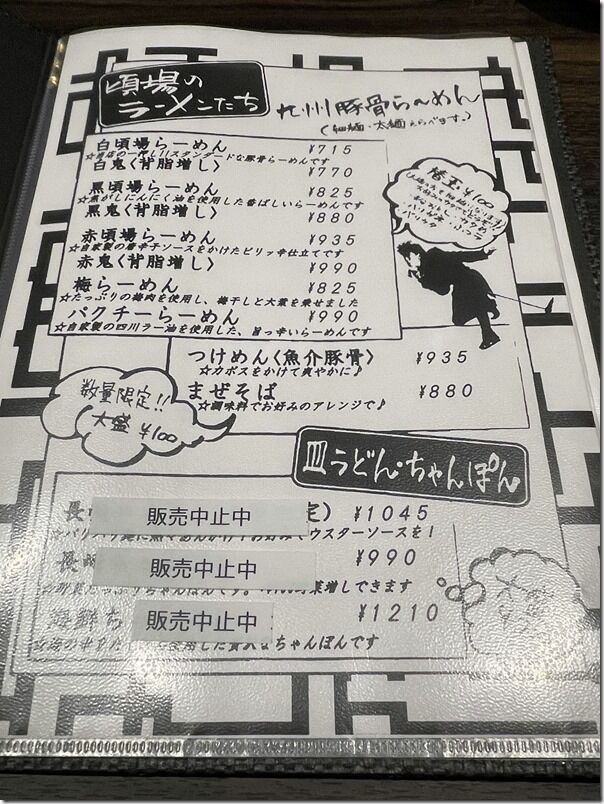 頃場の
ラーメンたち
九州豚骨らーめん
(細麺・太麺えらべます。)
白頃場らーめん ¥715
☆当店の一押し!!スタンダードな豚骨らーめんです
白鬼〈背脂増し〉 ¥770
黒頃場らーめん ¥825
☆焦がしにんにく油を使用した香ばしいらーめんです
黒鬼〈背脂増し〉 ¥880
赤頃場らーめん ¥935
☆自家製の唐辛子ソースをかけたピリッ辛仕立てです
赤鬼〈背脂増し〉 ¥990
梅らーめん ¥825
☆たっぷりの梅肉を使用し、梅干しと大葉を乗せました
パクチーらーめん ¥990
☆自家製の四川ラー油を使用した、旨っ辛いらーめんです
替玉 ¥100
つけめん〈魚介豚骨〉 ¥935
☆カボスをかけて爽やかに♪
まぜそば ¥880
☆調味料でお好みのアレンジで♪
数量限定!!
大盛 ¥100
皿うどん・ちゃんぽん
販売中止中 定〉 ¥1045
ウスターソースを!
販売中止中 ¥990
菜増しできます
海鮮ち 販売中止中 ¥1210
使用した贅沢なちゃんぽんです